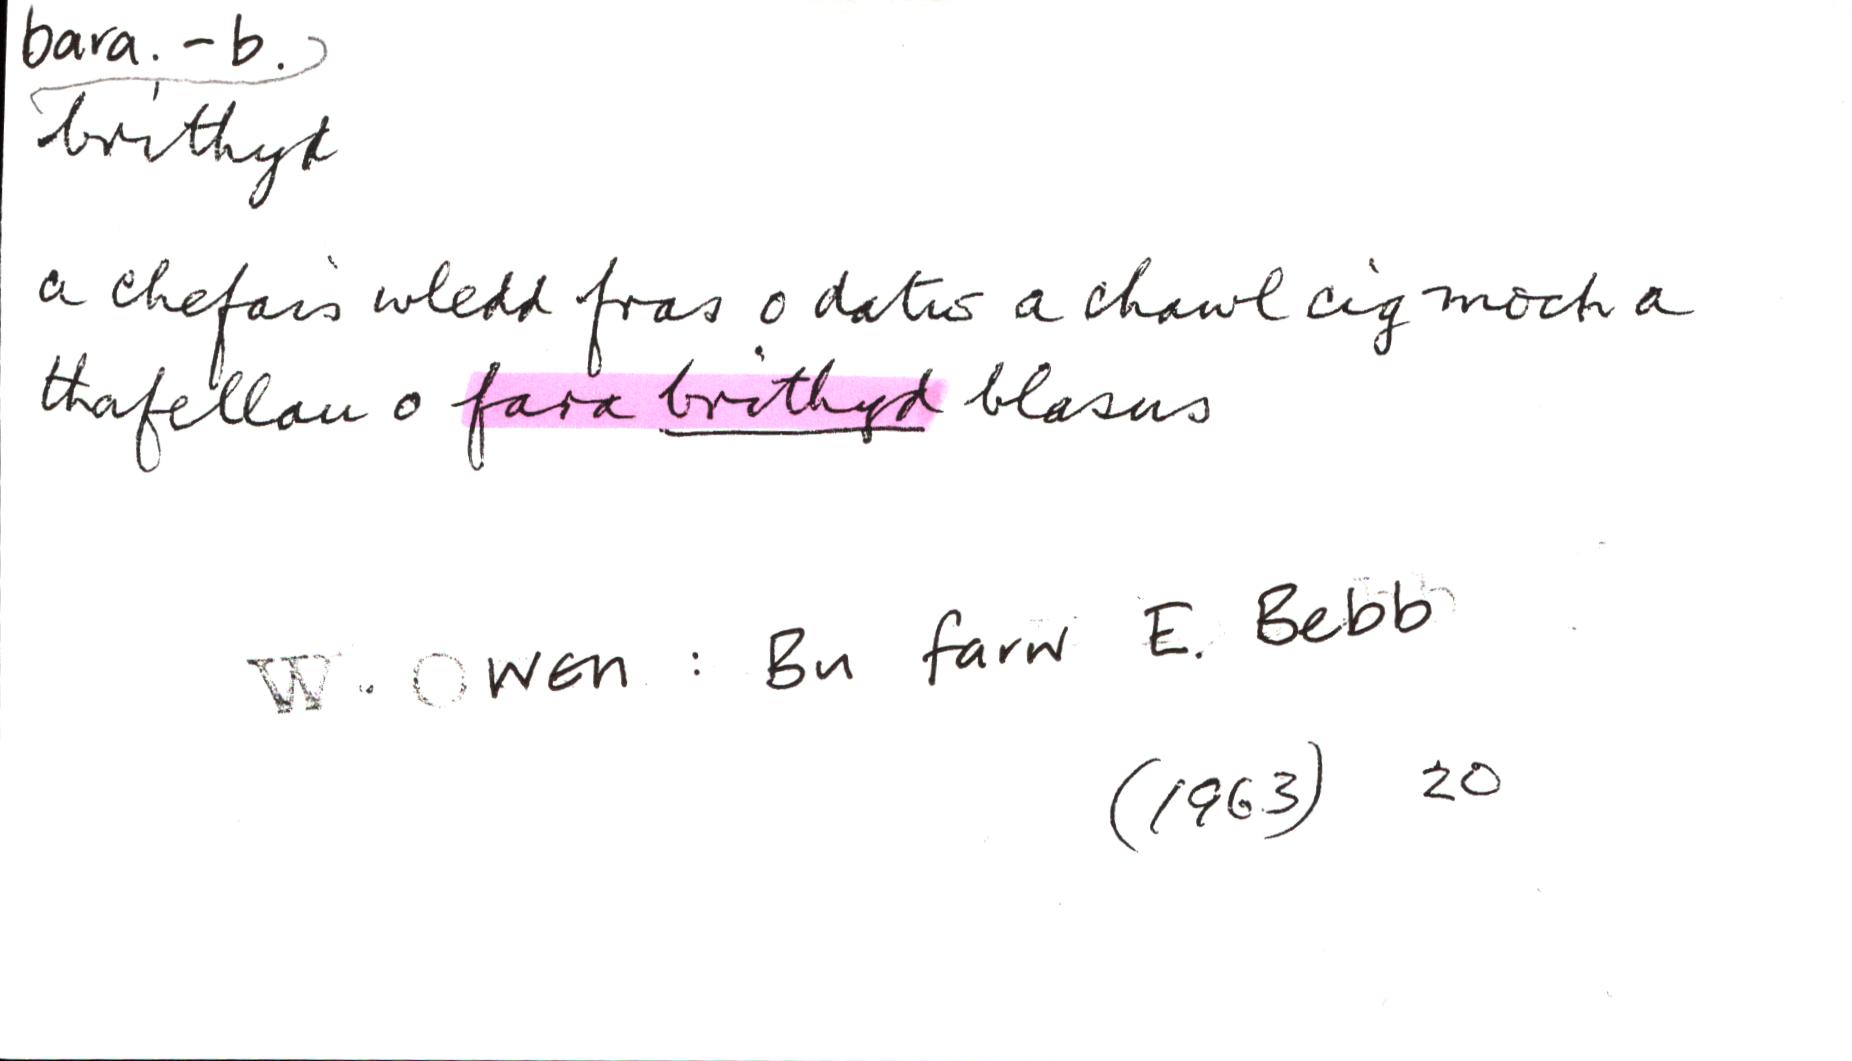 bara. - b.
brithyd
a chefais wledd fras o datws a chawl cig moch a
thafellau o fara brithyd blasus
W. Owen : Bu farw E. Bebb
(1963) 20